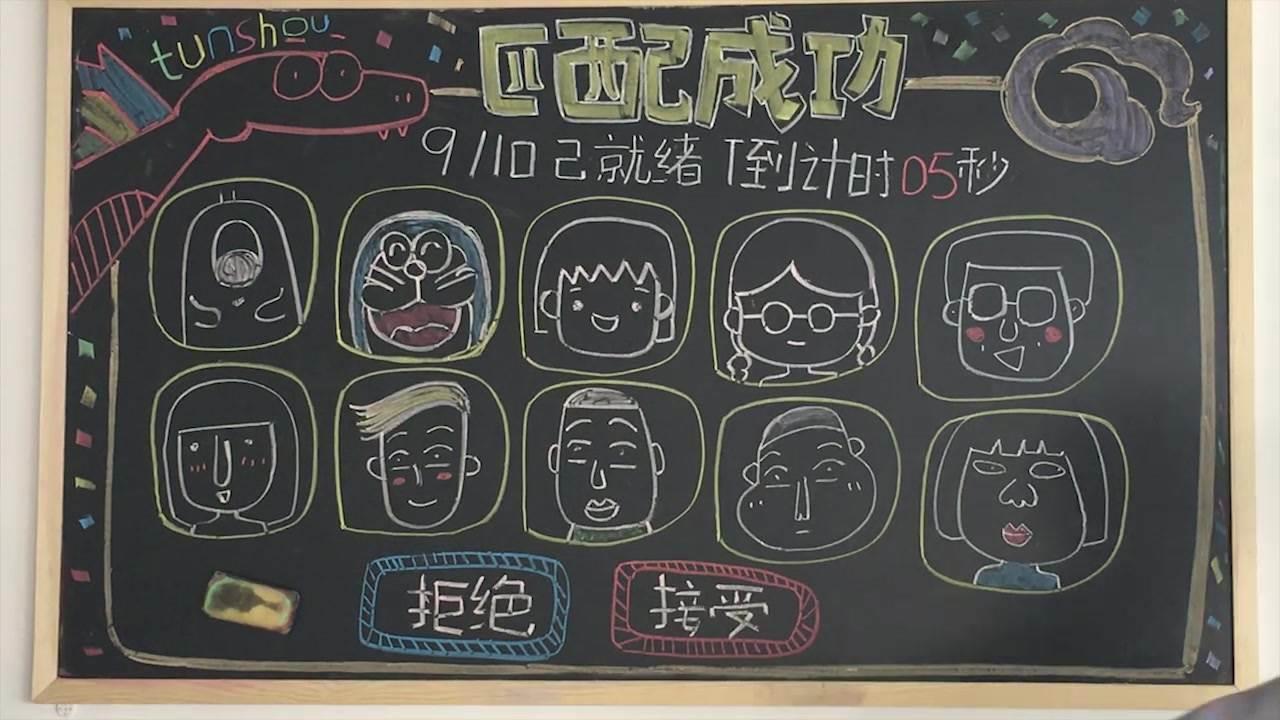 tunshou
匹配成功
9/10已就绪 倒计时05秒
拒绝
接受